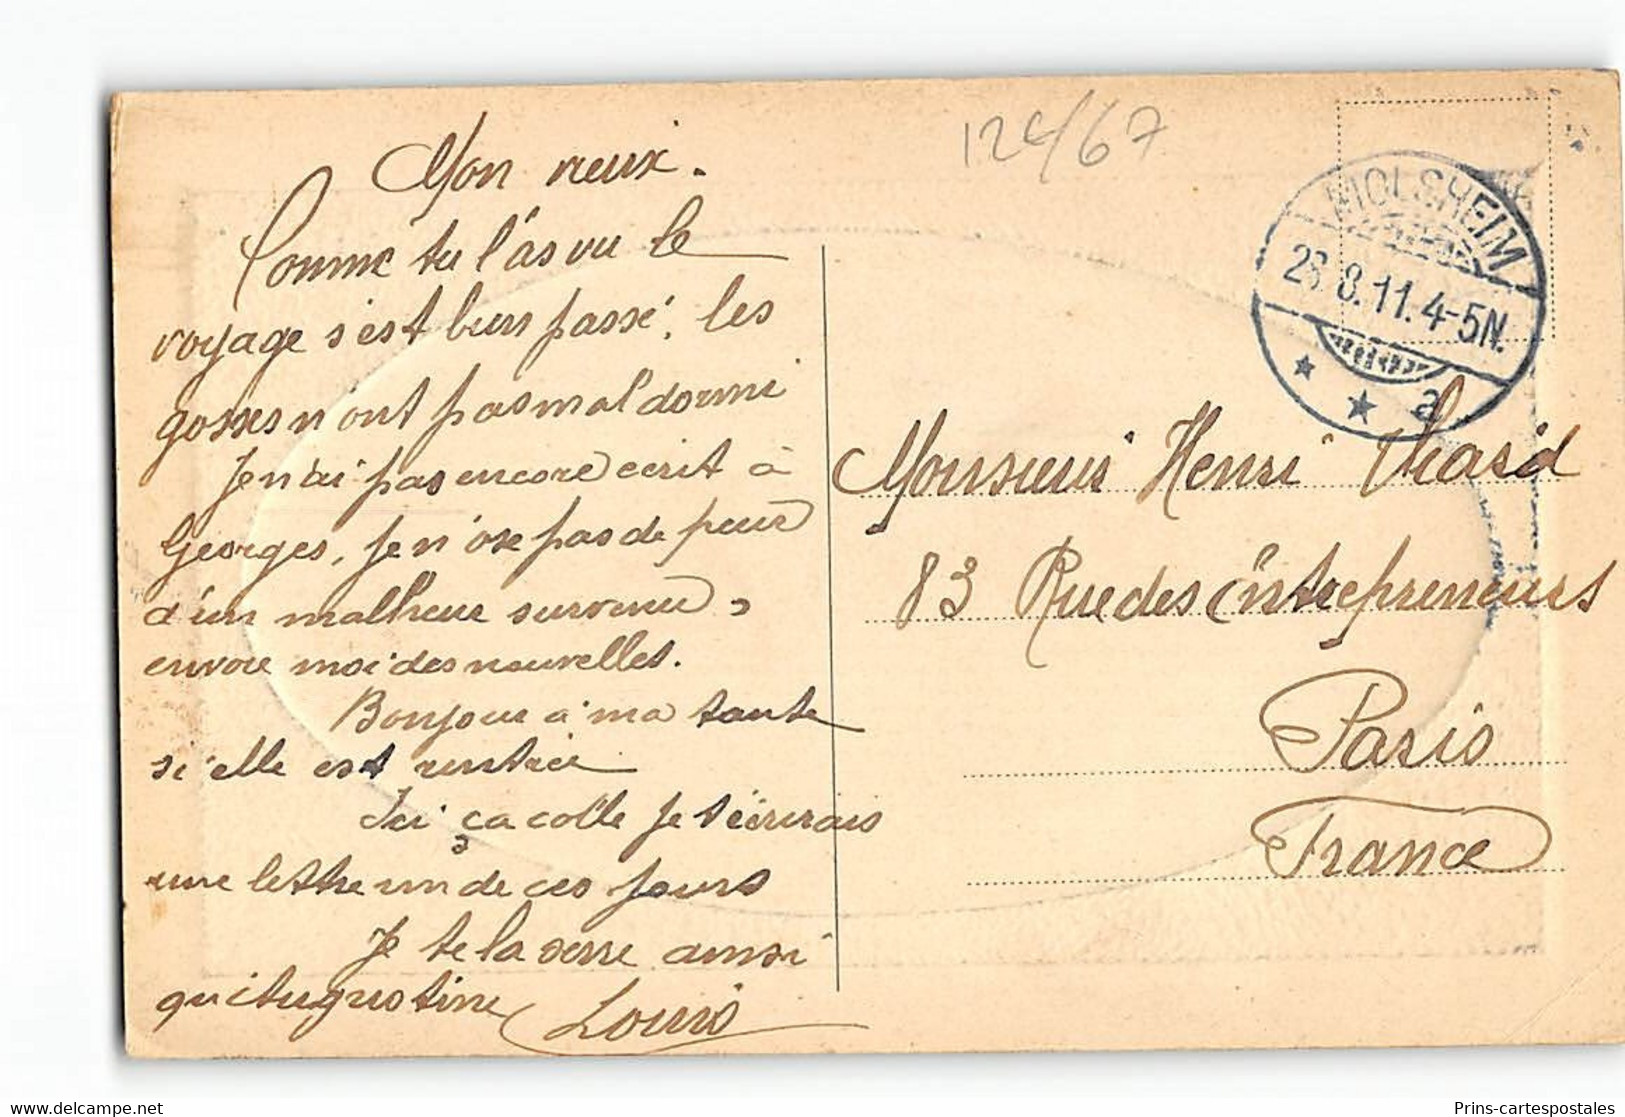 124/67
MOLSHEIM
28.8.11.4-5N.
a
Mon vieux.
Comme tu l'as vu le
voyage s'est bien passé, les
gosses n'ont pas mal dormi
Je n'ai pas encore écrit à
Georges, je n'ose pas de peur
d'un malheur survenu,
envoie moi des nouvelles.
Bonjour à ma tante
si elle est rentrée
Ici ça colle je t'écrirais
une lettre un de ces jours
Je te la serre ainsi
qu'Augustine Louis
Monsieur Henri Viard
83 Rue des Entrepreneurs
Paris
France
www.delcampe.net
Prins-cartespostales